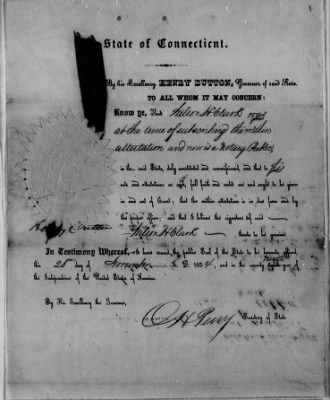 State of Connecticut.
By his Excellency HENRY DUTTON, Governor of said State.
TO ALL WHOM IT MAY CONCERN:
Know ye, That Wilson H Clark was
at the time of subscribing the within
attestation and now is a Notary Public
in the said State, duly constituted and commissioned; and that to his
acts and attestations as such, full faith and credit are and ought to be given
in and out of Court; and that the within attestation is in due form and by
the proper officer; and that I believe the signature of said
Henry Dutton Wilson H Clark thereto to be genuine.
In Testimony Whereof, I have caused the public Seal of the State to be hereunto affixed, this
28 day of November A. D. 1854, and in the seventy year of
the Independence of the United States of America.
By His Excellency the Governor,
Secretary of State